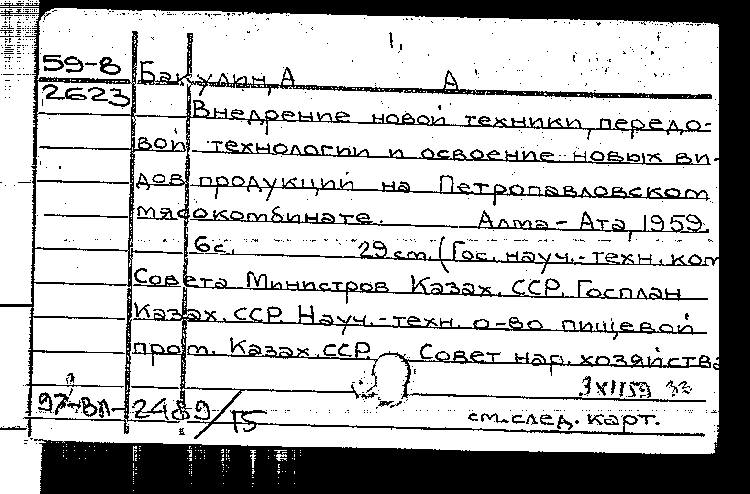 1,
59-8 Бакулин, А А
2623 Внедрение новой техники, передо-
вой технологии и освоение новых ви-
дов продукции на Петропавловском
мясокомбинате. Алма-Ата, 1959.
6с. 29 см. (Гос. науч.-техн. ком
Совета Министров Казах. ССР. Госплан
Казах. ССР. Науч.-техн. о-во пищевой
пром. Казах. ССР. Совет нар. хозяйства
97-ВЛ-2489/15 см. след. карт.